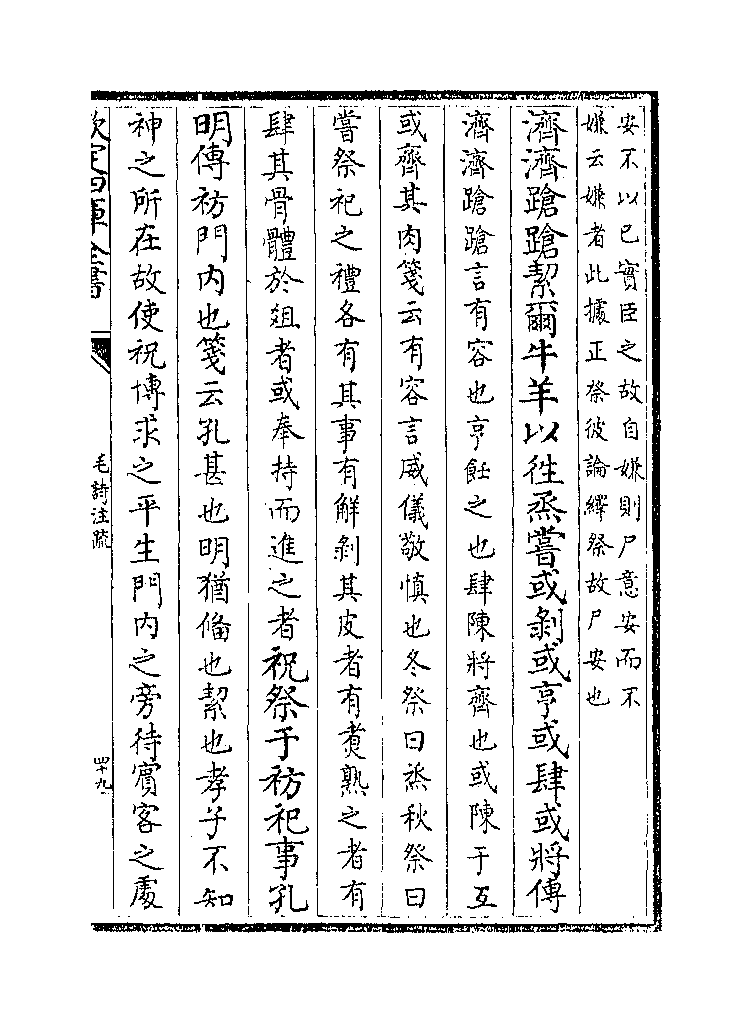 安不以已實臣之故自嫌則尸意安而不
嫌云嫌者此據正祭彼論繹祭故尸安也
濟濟蹌蹌絜爾牛羊以徃烝嘗或剝或亨或肆或將傳
濟濟蹌蹌言有容也亨飪之也肆陳將齊也或陳于互
或齊其肉箋云有容言威儀敬慎也冬祭曰烝秋祭曰
嘗祭祀之禮各有其事有解剝其皮者有煑熟之者有
肆其骨體於俎者或奉持而進之者祝祭于祊祀事孔
明傳祊門内也箋云孔甚也明猶備也絜也孝子不知
神之所在故使祝慱求之平生門内之旁待賔客之處
欽定四庫全書
毛詩注疏
四十九